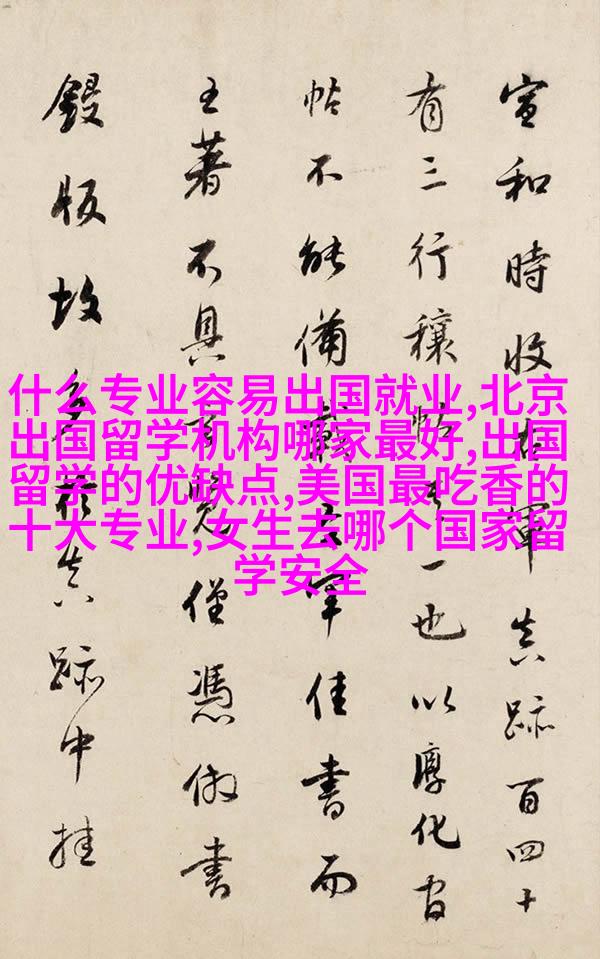 宣和時收右軍真跡百四十
有三行穰帖其一也以淳化官
帖不能備載右軍佳書而
王著不具覽僅憑倣書
鋟版故真跡中挂
什么专业容易出国就业,北京
出国留学机构哪家最好,出国
留学的优缺点,美国最吃香的
十大专业,女生去哪个国家留
学安全